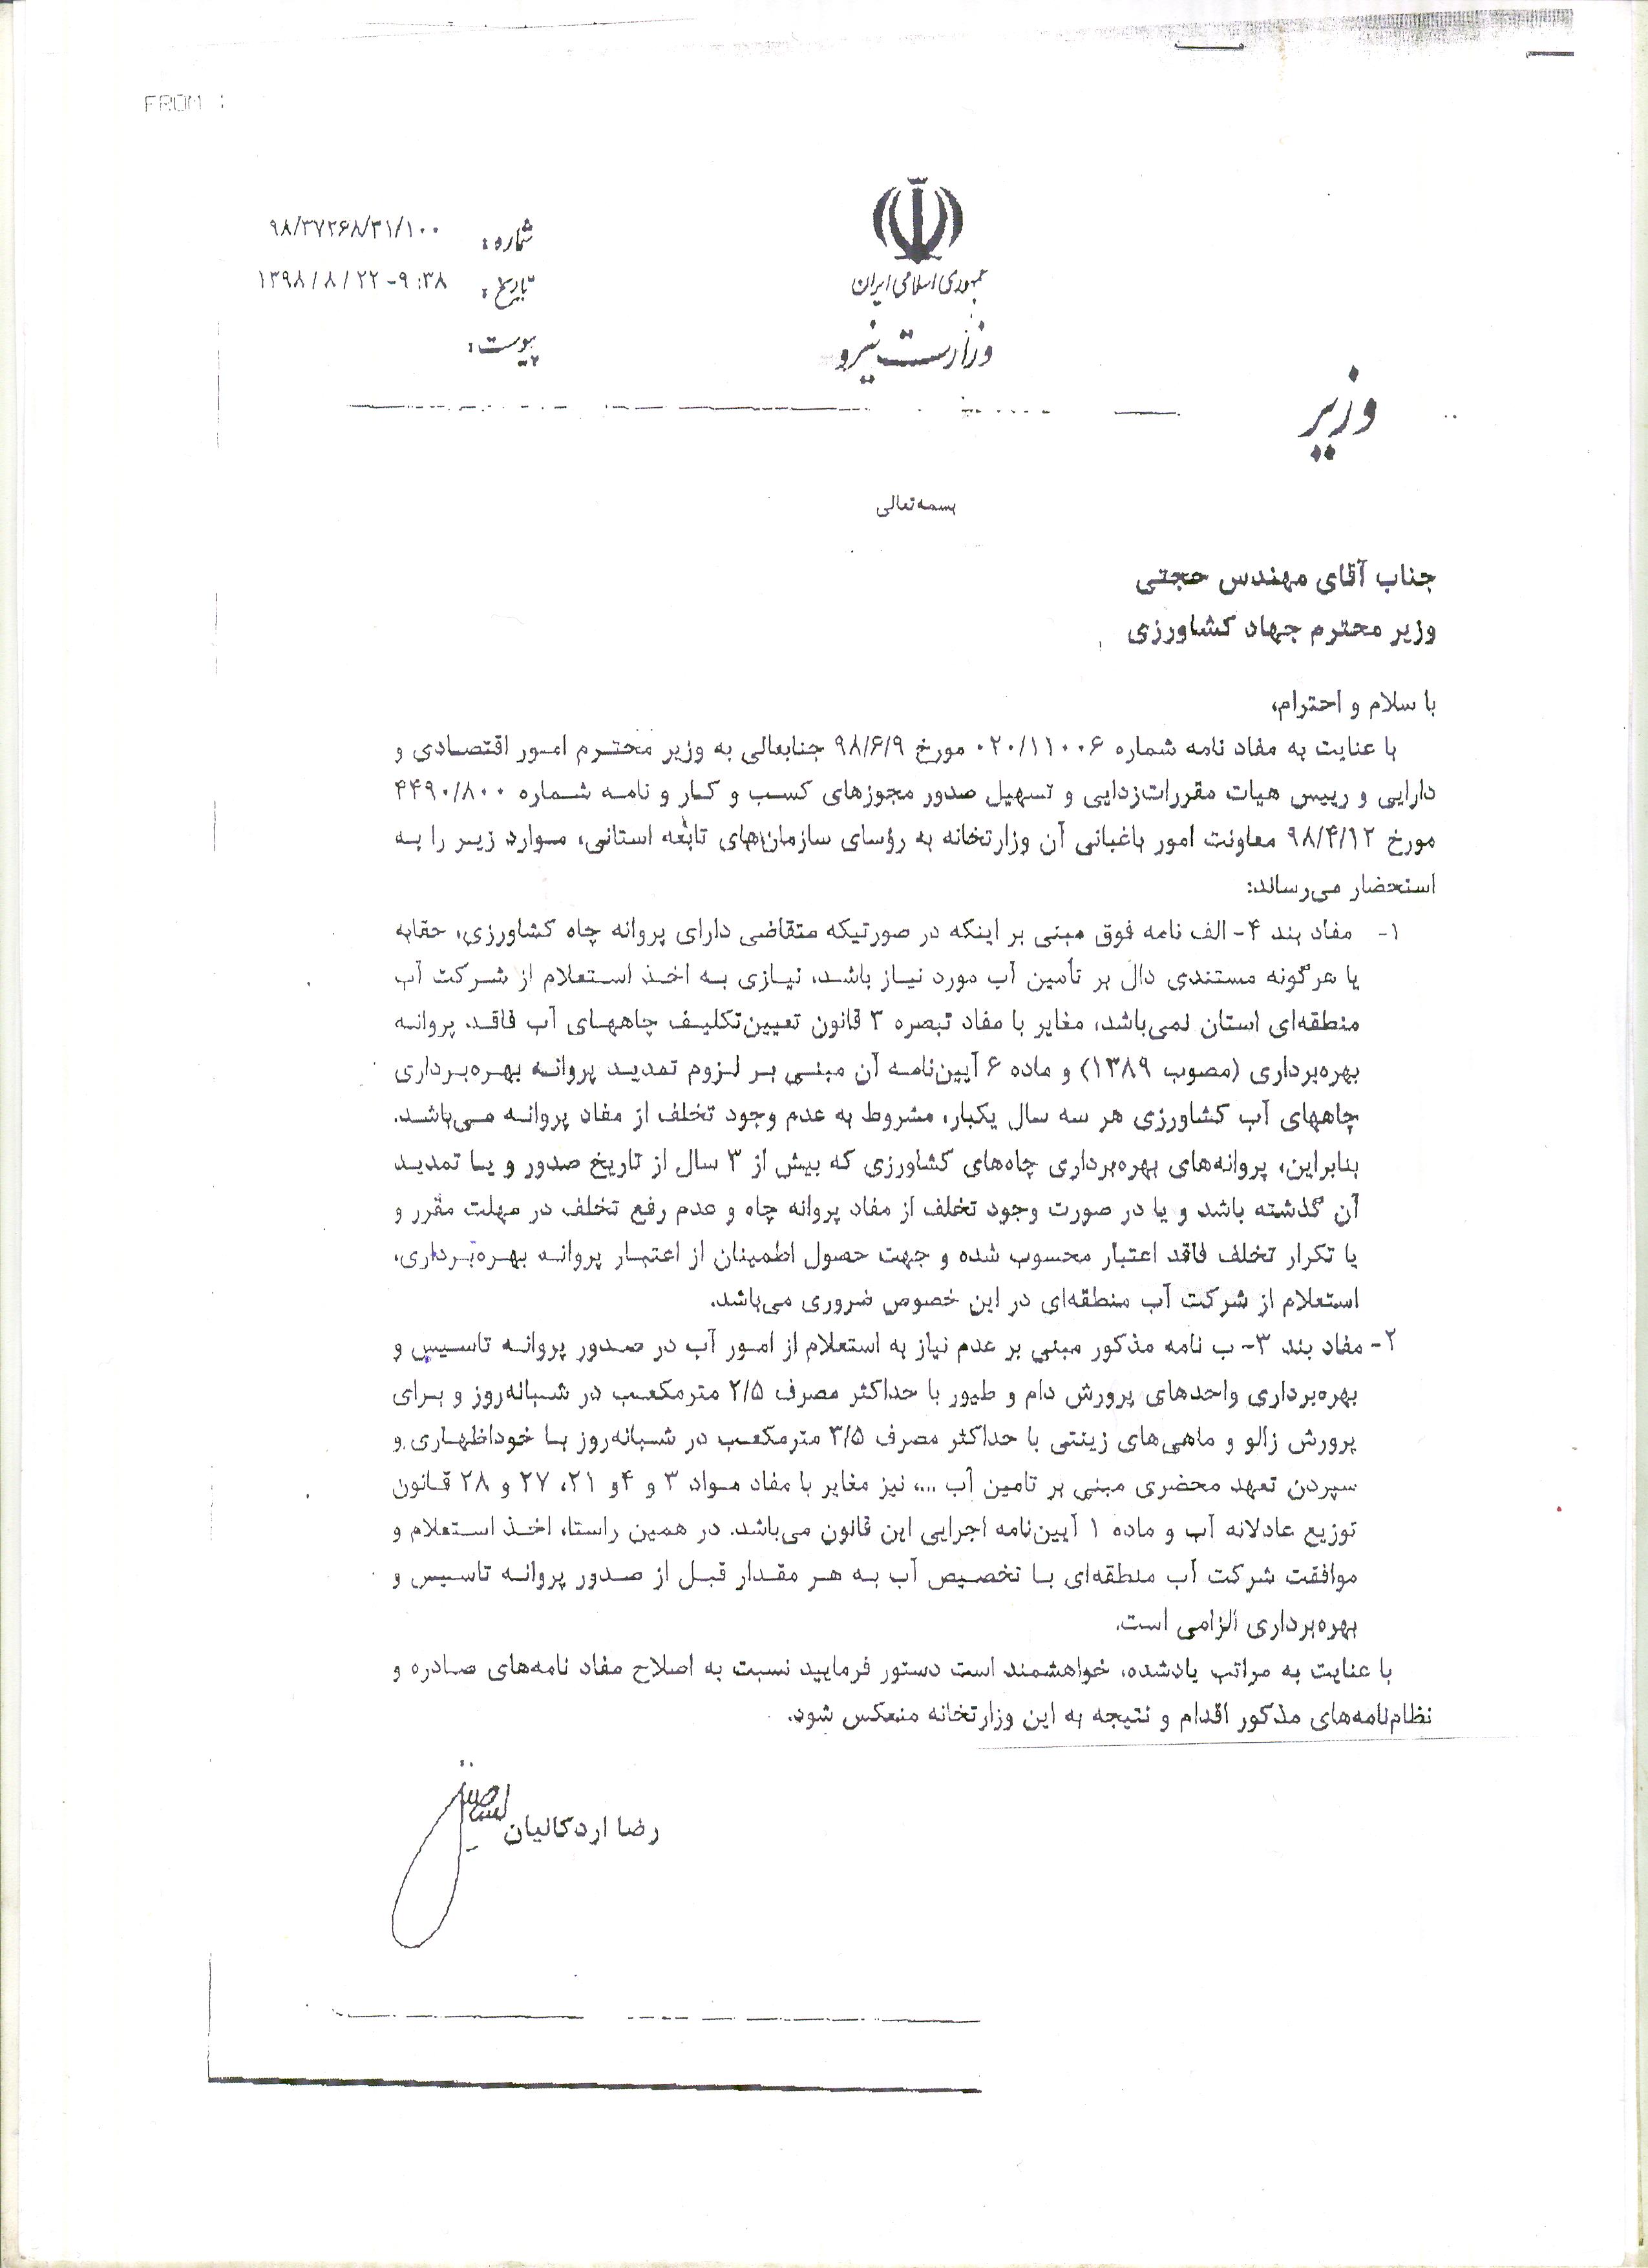 FROM :
جمهوری اسلامی ایران
وزارت نیرو
وزیر
شماره: ۹۸/۳۷۲۶۸/۳۱/۱۰۰
تاریخ: ۱۳۹۸/۸/۲۲-۹:۳۸
پیوست:
بسمه‌تعالی
جناب آقای مهندس حجتی
وزیر محترم جهاد کشاورزی
با سلام و احترام،
با عنایت به مفاد نامه شماره ۰۲۰/۱۱۰۰۶ مورخ ۹۸/۶/۹ جنابعالی به وزیر محترم امور اقتصادی و
دارایی و رییس هیات مقررات‌زدایی و تسهیل صدور مجوزهای کسب و کار و نامه شماره ۴۴۹۰/۸۰۰
مورخ ۹۸/۴/۱۲ معاونت امور باغبانی آن وزارتخانه به رؤسای سازمان‌های تابعه استانی، موارد زیر را به
استحضار می‌رساند:
۱- مفاد بند ۴-الف نامه فوق مبنی بر اینکه در صورتیکه متقاضی دارای پروانه چاه کشاورزی، حقابه
یا هرگونه مستندی دال بر تأمین آب مورد نیاز باشد، نیازی به اخذ استعلام از شرکت آب
منطقه‌ای استان نمی‌باشد، مغایر با مفاد تبصره ۳ قانون تعیین‌تکلیف چاههای آب فاقد پروانه
بهره‌برداری (مصوب ۱۳۸۹) و ماده ۶ آیین‌نامه آن مبنی بر لزوم تمدید پروانه بهره‌برداری
چاههای آب کشاورزی هر سه سال یکبار، مشروط به عدم وجود تخلف از مفاد پروانه می‌باشد.
بنابراین، پروانه‌های بهره‌برداری چاه‌های کشاورزی که بیش از ۳ سال از تاریخ صدور و یا تمدید
آن گذشته باشد و یا در صورت وجود تخلف از مفاد پروانه چاه و عدم رفع تخلف در مهلت مقرر و
یا تکرار تخلف فاقد اعتبار محسوب شده و جهت حصول اطمینان از اعتبار پروانه بهره‌برداری،
استعلام از شرکت آب منطقه‌ای در این خصوص ضروری می‌باشد.
۲- مفاد بند ۳-ب نامه مذکور مبنی بر عدم نیاز به استعلام از امور آب در صدور پروانه تاسیس و
بهره‌برداری واحدهای پرورش دام و طیور با حداکثر مصرف ۲/۵ مترمکعب در شبانه‌روز و برای
پرورش زالو و ماهی‌های زینتی با حداکثر مصرف ۳/۵ مترمکعب در شبانه‌روز با خوداظهاری و
سپردن تعهد محضری مبنی بر تامین آب ...، نیز مغایر با مفاد مواد ۳ و ۴و ۲۱، ۲۷ و ۲۸ قانون
توزیع عادلانه آب و ماده ۱ آیین‌نامه اجرایی این قانون می‌باشد. در همین راستا، اخذ استعلام و
موافقت شرکت آب منطقه‌ای با تخصیص آب به هر مقدار قبل از صدور پروانه تاسیس و
بهره‌برداری الزامی است.
با عنایت به مراتب یادشده، خواهشمند است دستور فرمایید نسبت به اصلاح مفاد نامه‌های صادره و
نظام‌نامه‌های مذکور اقدام و نتیجه به این وزارتخانه منعکس شود.
رضا اردکانیان